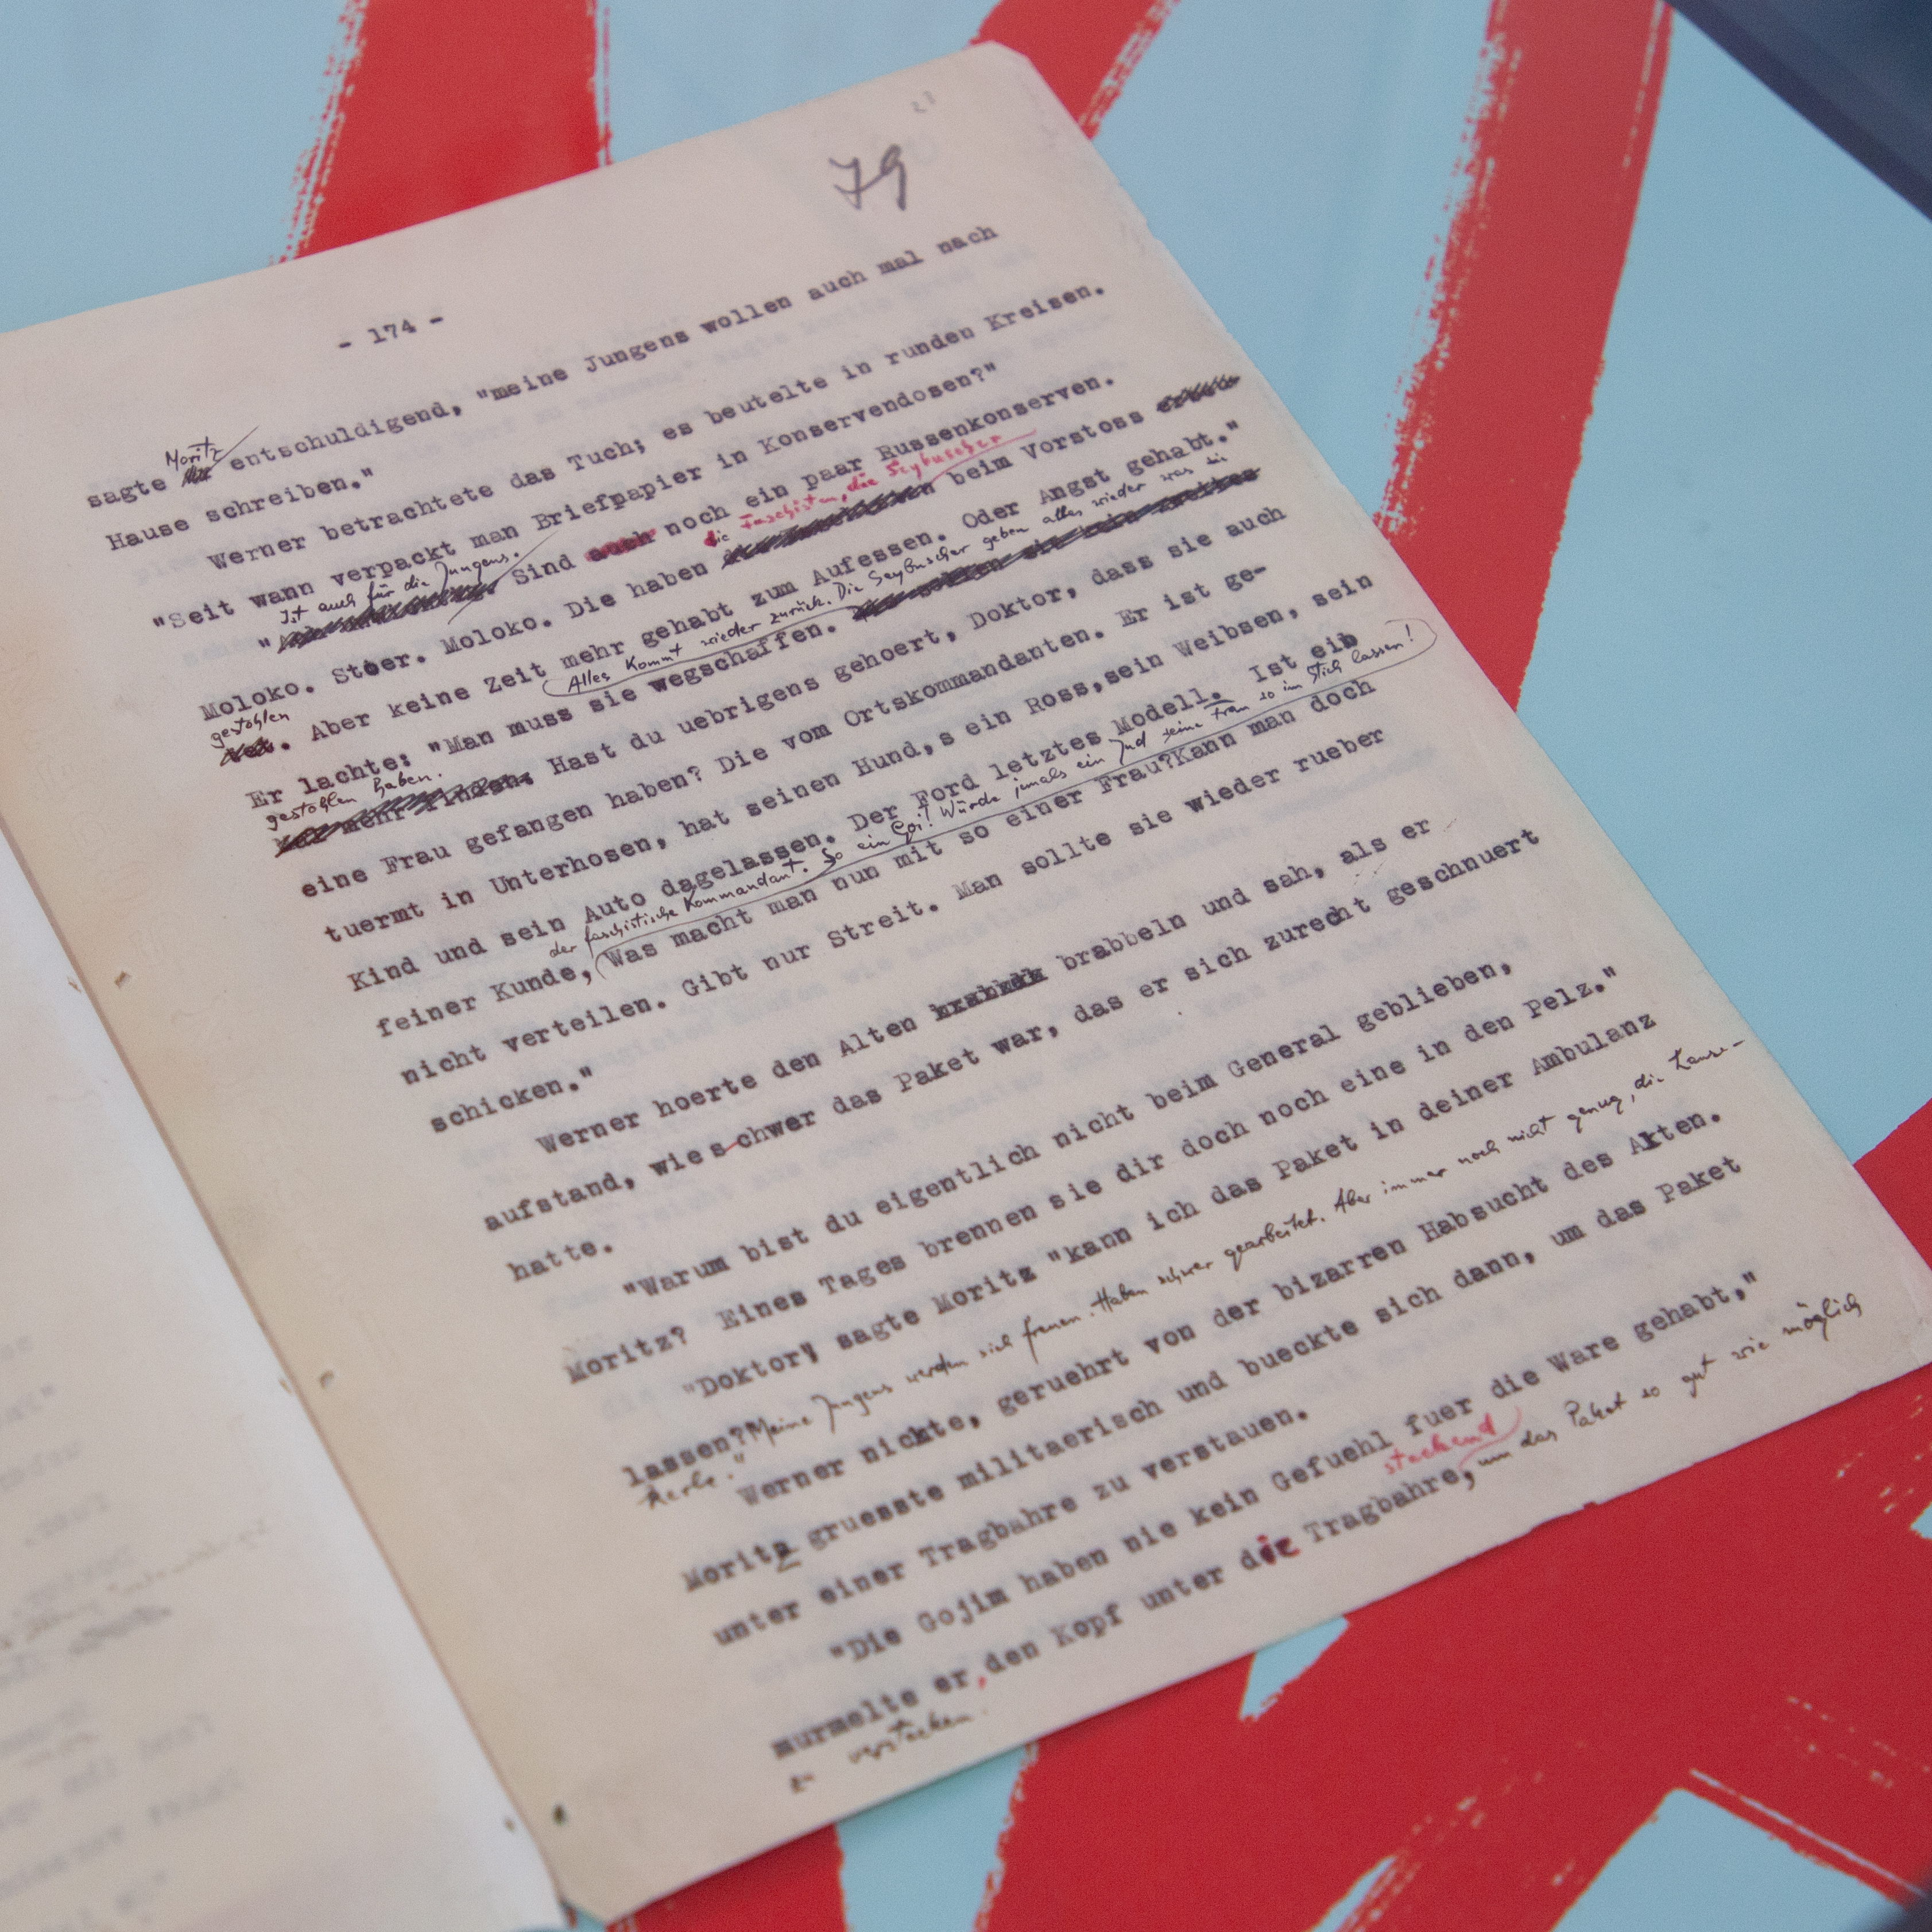 79
- 174 -
Moritz
sagte entschuldigend, "meine Jungens wollen auch mal nach
Hause schreiben."
Werner betrachtete das Tuch; es beutelte in runden Kreisen.
"Seit wann verpackt man Briefpapier in Konservendosen?"
Ist auch für die Jungens.
" Sind auch noch ein paar Russenkonserven.
die Faschisten, die Seybuscher
Moloko. Stoer. Moloko. Die haben beim Vorstoss
gestohlen
. Aber keine Zeit mehr gehabt zum Aufessen. Oder Angst gehabt."
Alles kommt wieder zurück. Die Seybuscher geben alles wieder was sie
Er lachte: "Man muss sie wegschaffen.
gestohlen haben.
mehr finden. Hast du uebrigens gehoert, Doktor, dass sie auch
eine Frau gefangen haben? Die vom Ortskommandanten. Er ist ge-
tuermt in Unterhosen, hat seinen Hund,s ein Ross,sein Weibsen, sein
Kind und sein Auto dagelassen. Der Ford letztes Modell. Ist ein
der faschistische Kommandant. So ein Goi! Würde jemals ein Jud seine Frau so im Stich lassen!
feiner Kunde, Was macht man nun mit so einer Frau?Kann man doch
nicht verteilen. Gibt nur Streit. Man sollte sie wieder rueber
schicken."
Werner hoerte den Alten brabbeln und sah, als er
aufstand, wie schwer das Paket war, das er sich zurecht geschnuert
hatte.
"Warum bist du eigentlich nicht beim General geblieben,
Moritz? Eines Tages brennen sie dir doch noch eine in den Pelz."
"Doktor" sagte Moritz "kann ich das Paket in deiner Ambulanz
lassen? Meine Jungens werden sich freuen. Haben schwer gearbeitet. Aber immer noch nicht genug, die Lause-
kerle."
Werner nickte, geruehrt von der bizarren Habsucht des Alten.
Moritz gruesste militaerisch und bueckte sich dann, um das Paket
unter einer Tragbahre zu verstauen.
"Die Gojim haben nie kein Gefuehl fuer die Ware gehabt,"
steckend
murmelte er, den Kopf unter die Tragbahre, um das Paket so gut wie möglich
zu verstecken.